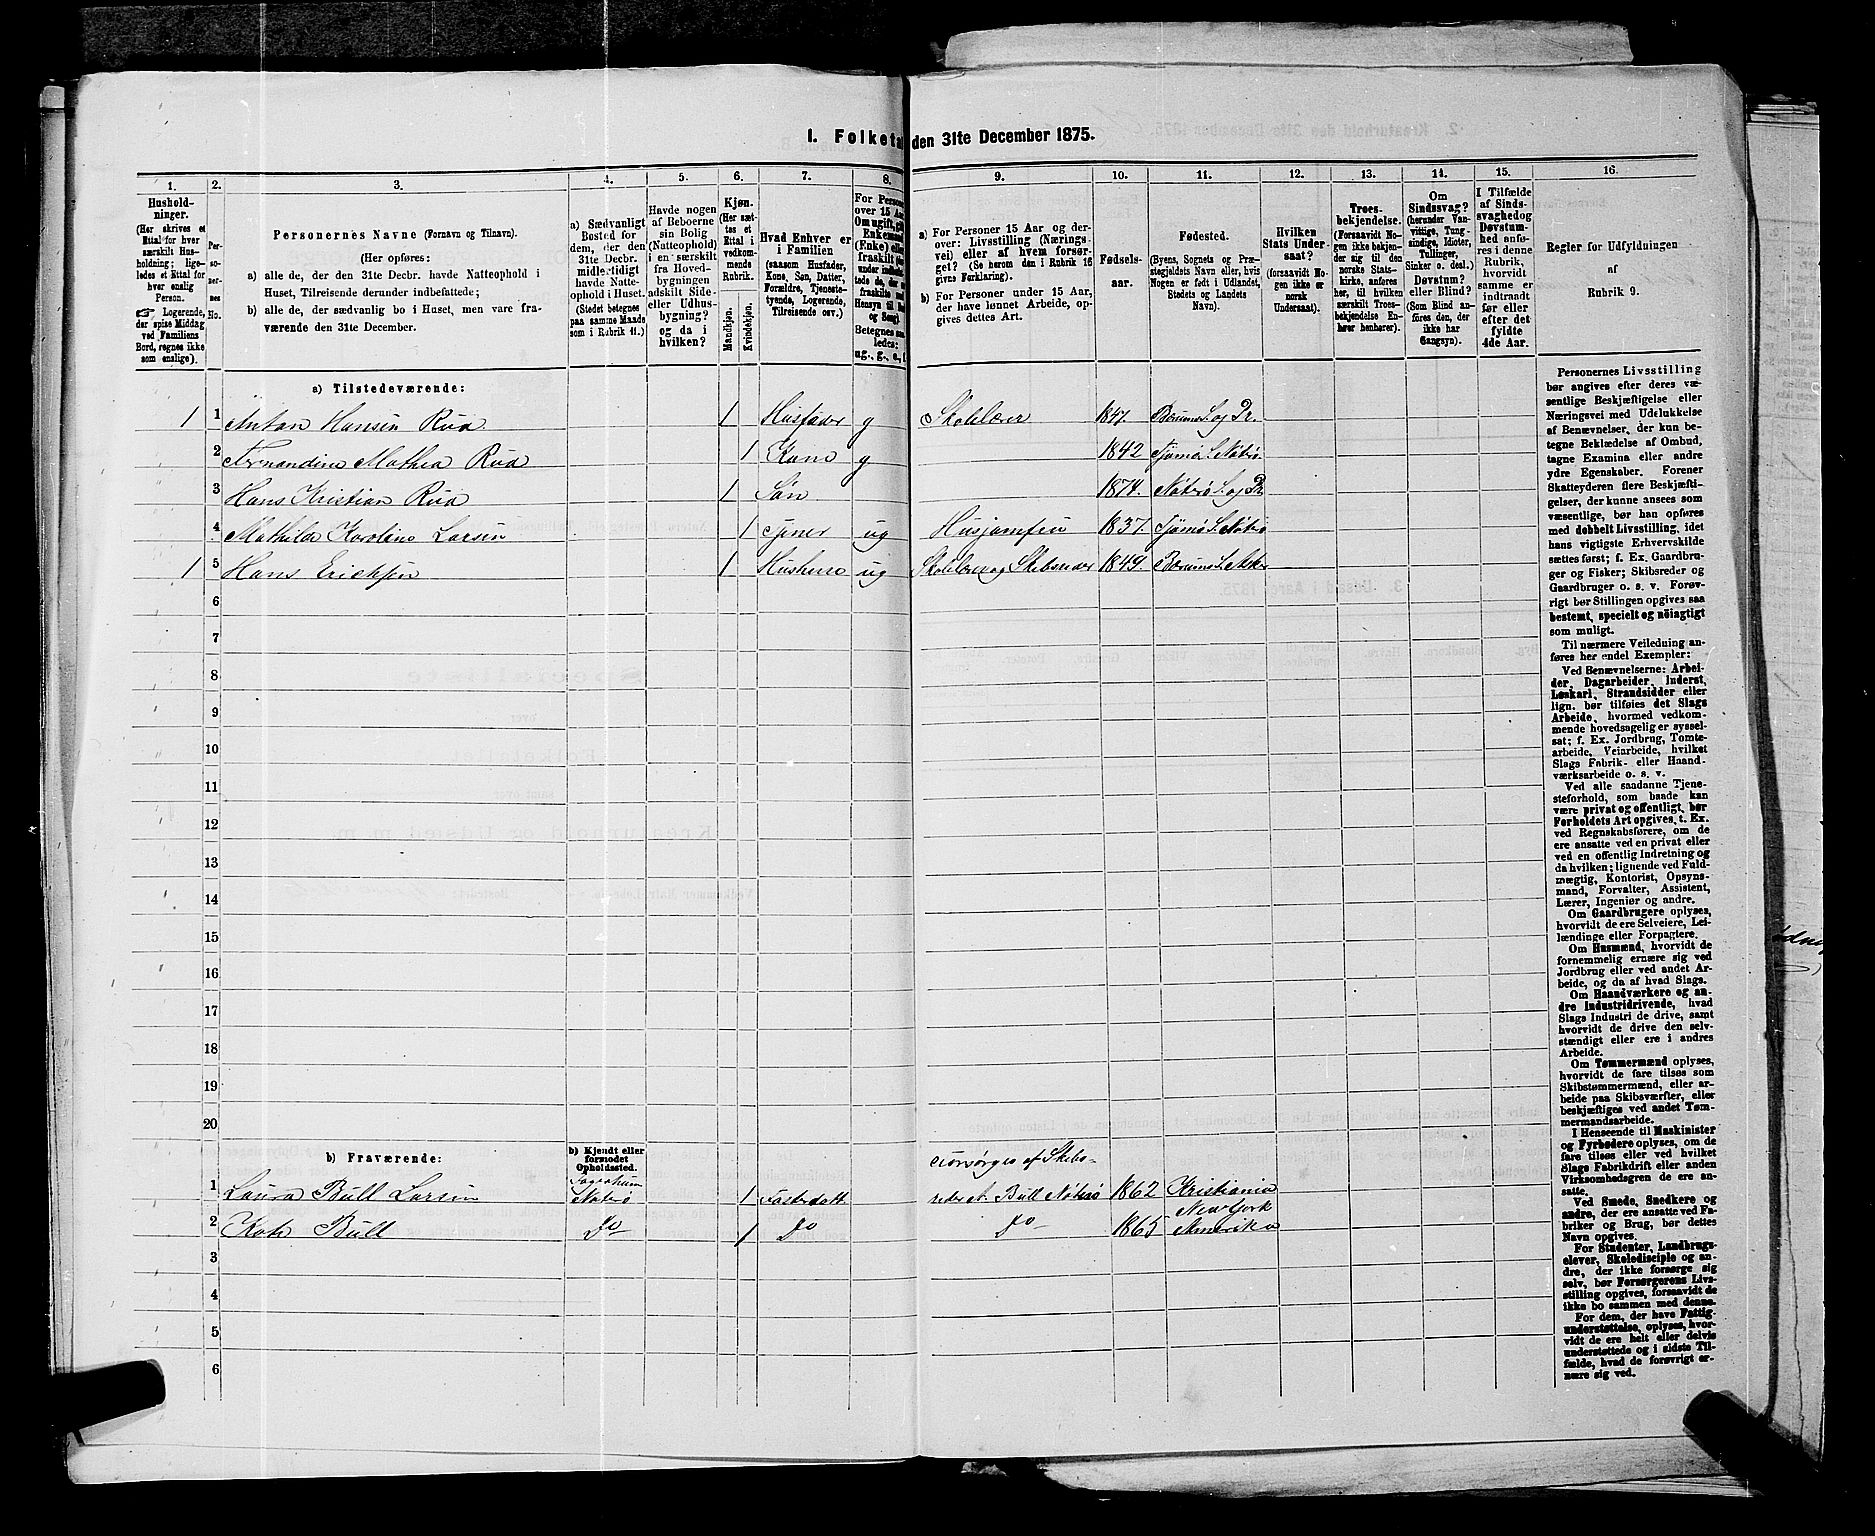 1. Folketal den 31te December 1875.
1. 2. 3. 4. 5. 6. 7. 8. 9. 10. 11. 12. 13. 14. 15. 16.
Hushold-
ninger.
(Her skrives et
Ettal for hver
særskilt Hus-
holdning; lige-
ledes et Ettal for
hver enslig
Person.
☞ Logerende,
der spise Middag
ved Familiens
Bord, regnes ikke
som enslige).
Per-
so-
ner-
nes
No.
Personernes Navne (Fornavn og Tilnavn).
(Her opføres:
a) alle de, der den 31te Decbr. havde Natteophold i
Huset, Tilreisende derunder indbefattede;
b) alle de, der sædvanlig bo i Huset, men vare fra-
værende den 31te December.
a) Sædvanligt
Bosted for
dem, der den
31te Decbr.
midlertidigt
havde Natte-
ophold i Huset.
(Stedet betegnes
paa samme Maade
som i Rubrik 11.)
Havde nogen
af Beboerne
sin Bolig
(Natteophold)
i en særskilt
fra Hoved-
bygningen
adskilt Side-
eller Udhus-
bygning?
og da i
hvilken?
Kjøn.
(Her sæt-
tes et
Ettal i
vedkom-
mende
Rubrik.)
Mandkjøn.
Kvindekjøn.
Hvad Enhver er
i Familien
(saasom Husfader,
Kone, Søn, Datter,
Forældre, Tjeneste-
tyende, Logerende,
Tilreisende osv.)
For Person
over 15 Aar
Om ugift, gift,
Enkemand
(Enke) eller
fraskilt
Betegnes saa-
ledes:
ug., g., e., f.
a) For Personer 15 Aar og der-
over: Livsstilling (Nærings-
vei) eller af hvem forsør-
get? (Se herom den i Rubrik 16
givne Forklaring.)
b) For Personer under 15 Aar,
der have lønnet Arbeide, op-
gives dettes Art.
Fødsels-
aar.
Fødested.
(Byens, Sognets og Præ-
stegjeldets Navn eller, hvis
Nogen er født i Udlandet,
Stedets og Landets
Navn).
Hvilken
Stats Under-
saat?
(forsaavidt No-
gen ikke er
norsk
Undersaat).
Troes-
bekjendelse.
(Forsaavidt No-
gen ikke bekjen-
der sig til den
norske Stats-
kirke, anføres
her, til hvilken
særskilt Troes-
bekjendelse En-
hver henhører).
Om
Sindssvag?
(herunder Van-
vittige, Tung-
sindige, Idioter,
Tullinger,
Sinker o. desl.)
Døvstum?
eller Blind?
(Som Blind an-
føres den, der
ikke har
Gangsyn).
I Tilfælde
af Sinds-
svaghed og
Døvstum-
hed anfø-
res i denne
Rubrik,
hvorvidt
samme er
indtraadt
før eller
efter det
fyldte
4de Aar.
Regler for Udfyldningen
af
Rubrik 9.
a) Tilstedeværende:
1 1 Anton Hansen Rud 1 Husfader g Skolelærer 1847. Bærums S. og Pr.
2 Fernandine Mathea Rud 1 Kone g 1842 Tjømø S. Nøterø
3 Hans Kristian Rud 1 Søn 1874. Nøterø S. og Pr.
4 Mathilde Karoline Larsen 1 tjener ug Husjomfru 1837. Tjømø S. Nøterø
1 5 Hans Ericksen 1 Husherre ug Skolelærer og Skibsreder 1849. Bærums S. Asker
6
7
8
9
10
11
12
13
14
15
16
17
18
19
20
b) Fraværende:
b) Kjendt eller
formodet
Opholdssted.
forsørges af Skibs-
1 Laura Bull Larsen Nøterø 1 Fosterdatt reder A. Bull Nøterø 1862 Kristiania
New York
2 Kate Bull Do 1 Do Do 1865 Amerika
3
4
5
6
Personernes Livsstilling
bør angives efter deres væ-
sentlige Beskjæftigelse eller
Næringsvei med Udelukkelse
af Benævnelser, der kun be-
tegne Beklædelse af Ombud,
tagne Examina eller andre
ydre Egenskaber. Forener
Skatteyderen flere Beskjæfti-
gelser, der kunne ansees som
væsentlige, bør han opføres
med dobbelt Livsstilling, idet
hans vigtigste Erhvervskilde
sættes først; f. Ex. Gaardbru-
ger og Fisker; Skibsreder og
Gaardbruger o. s. v. Forøv-
rigt bør Stillingen opgives saa
bestemt, specielt og nöiagtigt
som muligt.
Til nærmere Veiledning an-
føres her endel Exempler:
Ved Benævnelserne: Arbei-
der, Dagarbeider, Inderst,
Løskarl, Strandsidder eller
lign. bør tilføies det Slags
Arbeide, hvormed vedkom-
mende hovedsagelig er syssel-
sat; f. Ex. Jordbrug, Tomte-
arbeide, Veiarbeide, hvilket
Slags Fabrik- eller Haand-
værksarbeide o. s. v.
Ved alle saadanne Tjene-
steforhold, som baade kan
være privat og offentligt, bør
Forholdets Art opgives, t. Ex.
ved Regnskabsførere, om de
ere ansatte ved en privat eller
ved en offentlig Indretning og
da hvilken; lignende ved Fuld-
mægtig, Kontorist, Opsyns-
mand, Forvalter, Assistent,
Lærer, Ingeniør og andre.
Om Gaardbrugere oplyses,
hvorvidt de ere Selveiere, Lei-
lændinge eller Forpagtere.
Om Husmænd, hvorvidt de
fornemmelig ernære sig ved
Jordbrug eller ved andet Ar-
beide, og da af hvad Slags.
Om Haandværkere og an-
dre Industridrivende, hvad
Slags Industri de drive, samt
hvorvidt de drive den selv-
stændigt eller ere i andres
Arbeide.
Om Tømmermænd oplyses,
hvorvidt de fare tilsøs som
Skibstømmermænd, eller ar-
beide paa Skibsværfter, eller
beskjæftiges ved andet Tøm-
mermandsarbeide.
I Henseende til Maskinister
og Fyrbødere oplyses, om de
fare tilsøs eller ved hvilket
Slags Fabrikdrift eller anden
Virksomhedsgren de ere an-
satte.
Ved Smede, Snedkere og
andre, der ere ansatte ved Fa-
briker og Brug, bør dettes
Navn opgives.
For Studenter, Landbrugs-
elever, Skoledisciple og an-
dre, der ikke forsørge sig
selv, bør Forsørgerens Livs-
stilling opgives, forsaavidt de
ikke bo sammen med denne.
For dem, der have Fattig-
understøttelse, oplyses, hvor-
vidt de ere helt eller delvis
understøttede og i sidste Til-
fælde, hvad de forøvrigt er-
nære sig ved.